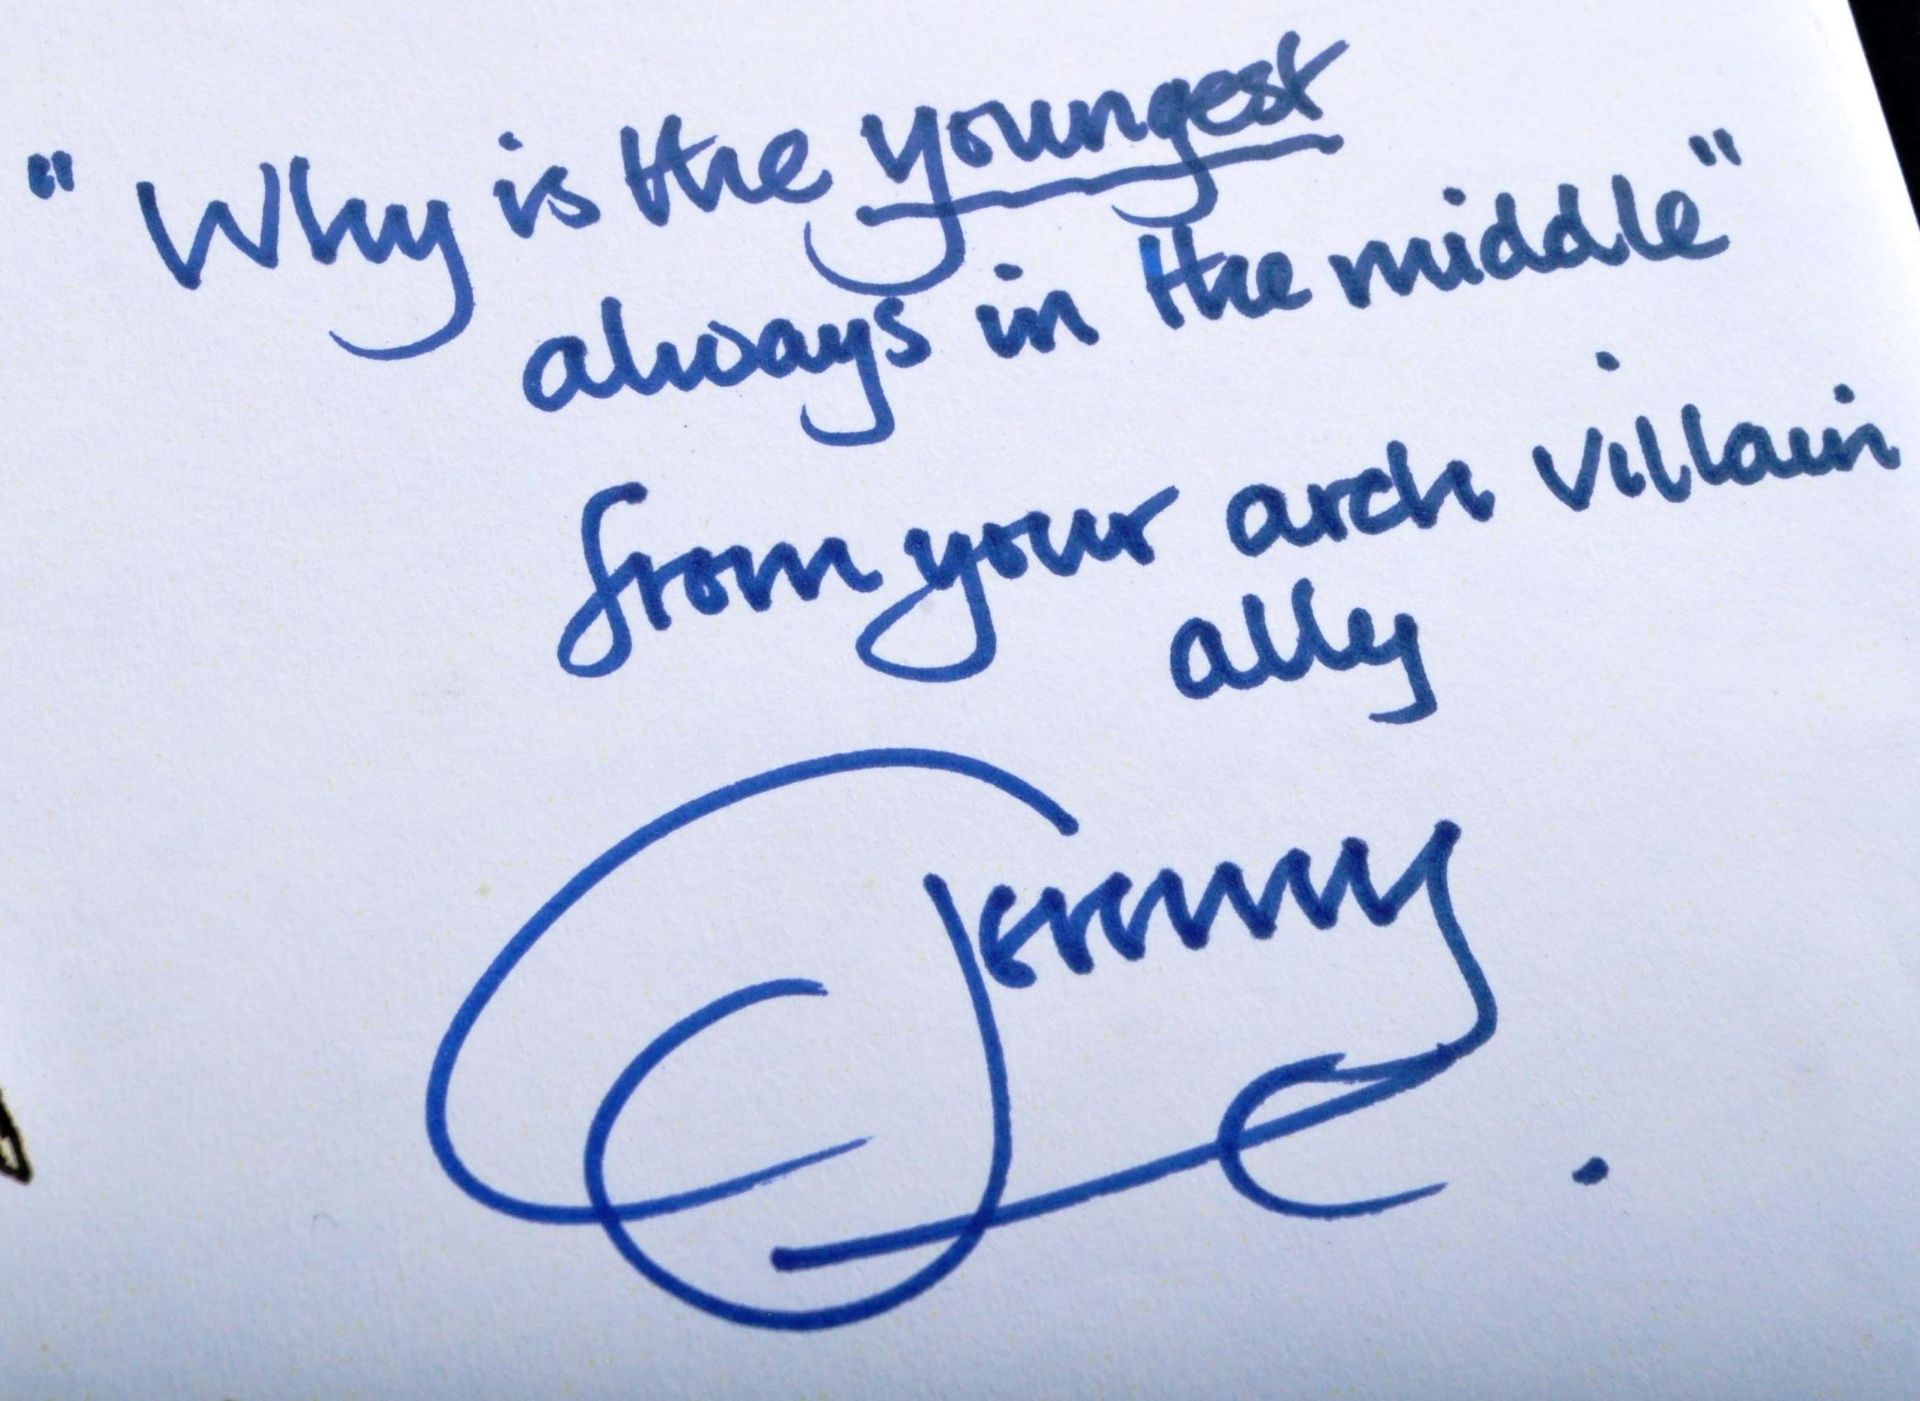 "Why is the youngest
always in the middle"
from your arch villain
ally
Jeremy